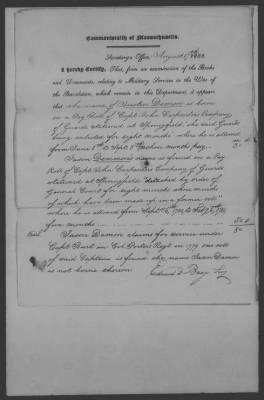 Commonwealth of Massachusetts.
Secretary's Office, August 1832.
I hereby Certify, That, from an examination of the Books
and Documents, relating to Military Service in the War of
the Revolution, which remain in this Department, it appears
that the name of Damon is borne
on a Pay Roll of Capt. John Carpenters Company
of Guards stationed at Springfield, the said Guards
being enlisted for eight months where he is allowed
from June 1st to Sept. months pay,
Jason Dammons name is found on a Pay
Roll of Capt. John Carpenters Company of Guards
stationed at Springfield detached by order of
General Court for eight months three months
of which have been made up in a former roll"
where he is allowed from Sept. to
five months
Note. Jason Damon claims for service under
Capt. Burt in Col. Porters Regt. in 1779 one roll
of said Captains is found the name Jason Damon
is not borne thereon.
Edward D. Bangs Secy